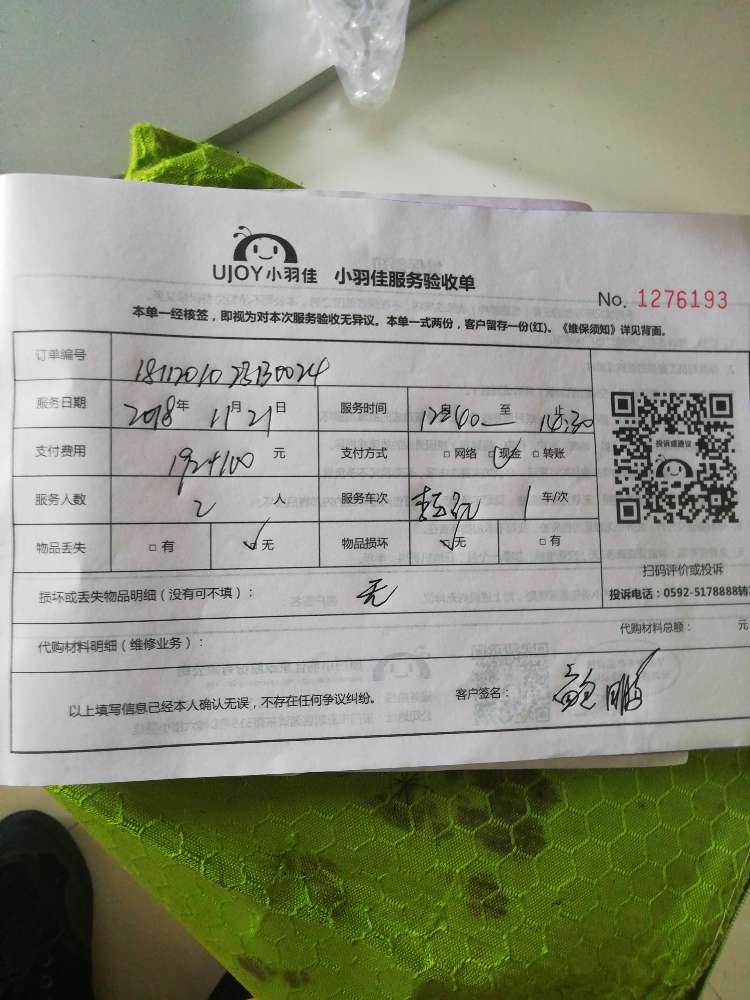 UJOY小羽佳 小羽佳服务验收单
No. 1276193
本单一经核签，即视为对本次服务验收无异议。本单一式两份，客户留存一份(红)。《维保须知》详见背面。
订单编号
服务日期 2018年 11月 21日 服务时间 12:40 至 14:30
支付费用 元 支付方式 □ 网络 □ 现金 □ 转账
服务人数 2 人 服务车次 1 车/次
物品丢失 □ 有 □ 无 物品损坏 □ 无 □ 有
投诉或建议
扫码评价或投诉
投诉电话：0592-5178888转
损坏或丢失物品明细（没有可不填）： 无
代购材料明细（维修业务）： 代购材料总额： 元
以上填写信息已经本人确认无误，不存在任何争议纠纷。 客户签名：